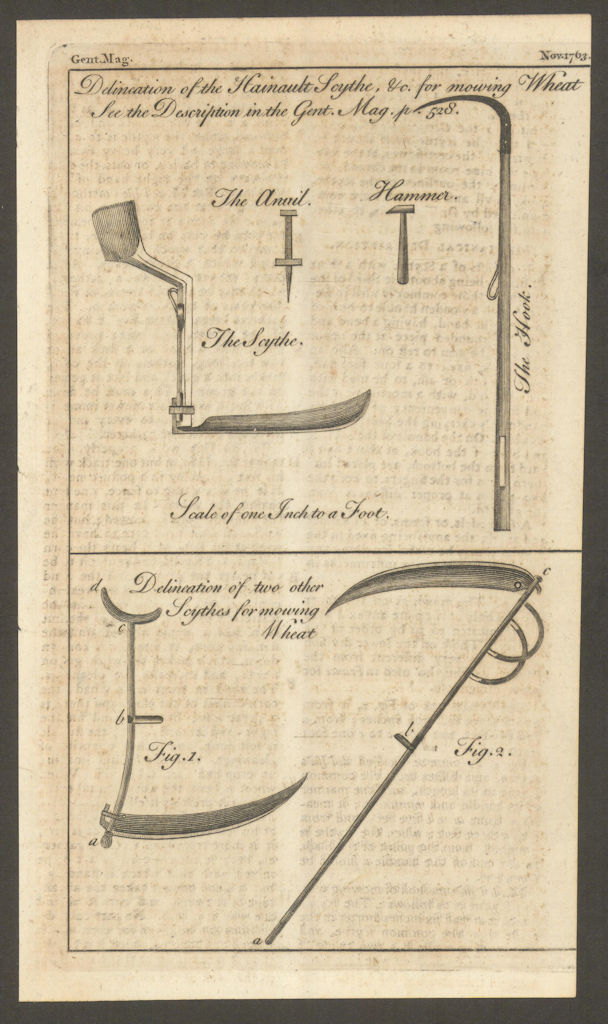 Gent. Mag.
Nov. 1763.
Delineation of the Hainault Scythe, &c. for mowing Wheat
See the Description in the Gent. Mag. p. 528.
The Anvil.
Hammer.
The Scythe.
The Hook.
Scale of one Inch to a Foot.
d
Delineation of two other
c
Scythes for mowing
c
Wheat
b
b
Fig. 1.
Fig. 2.
a
a